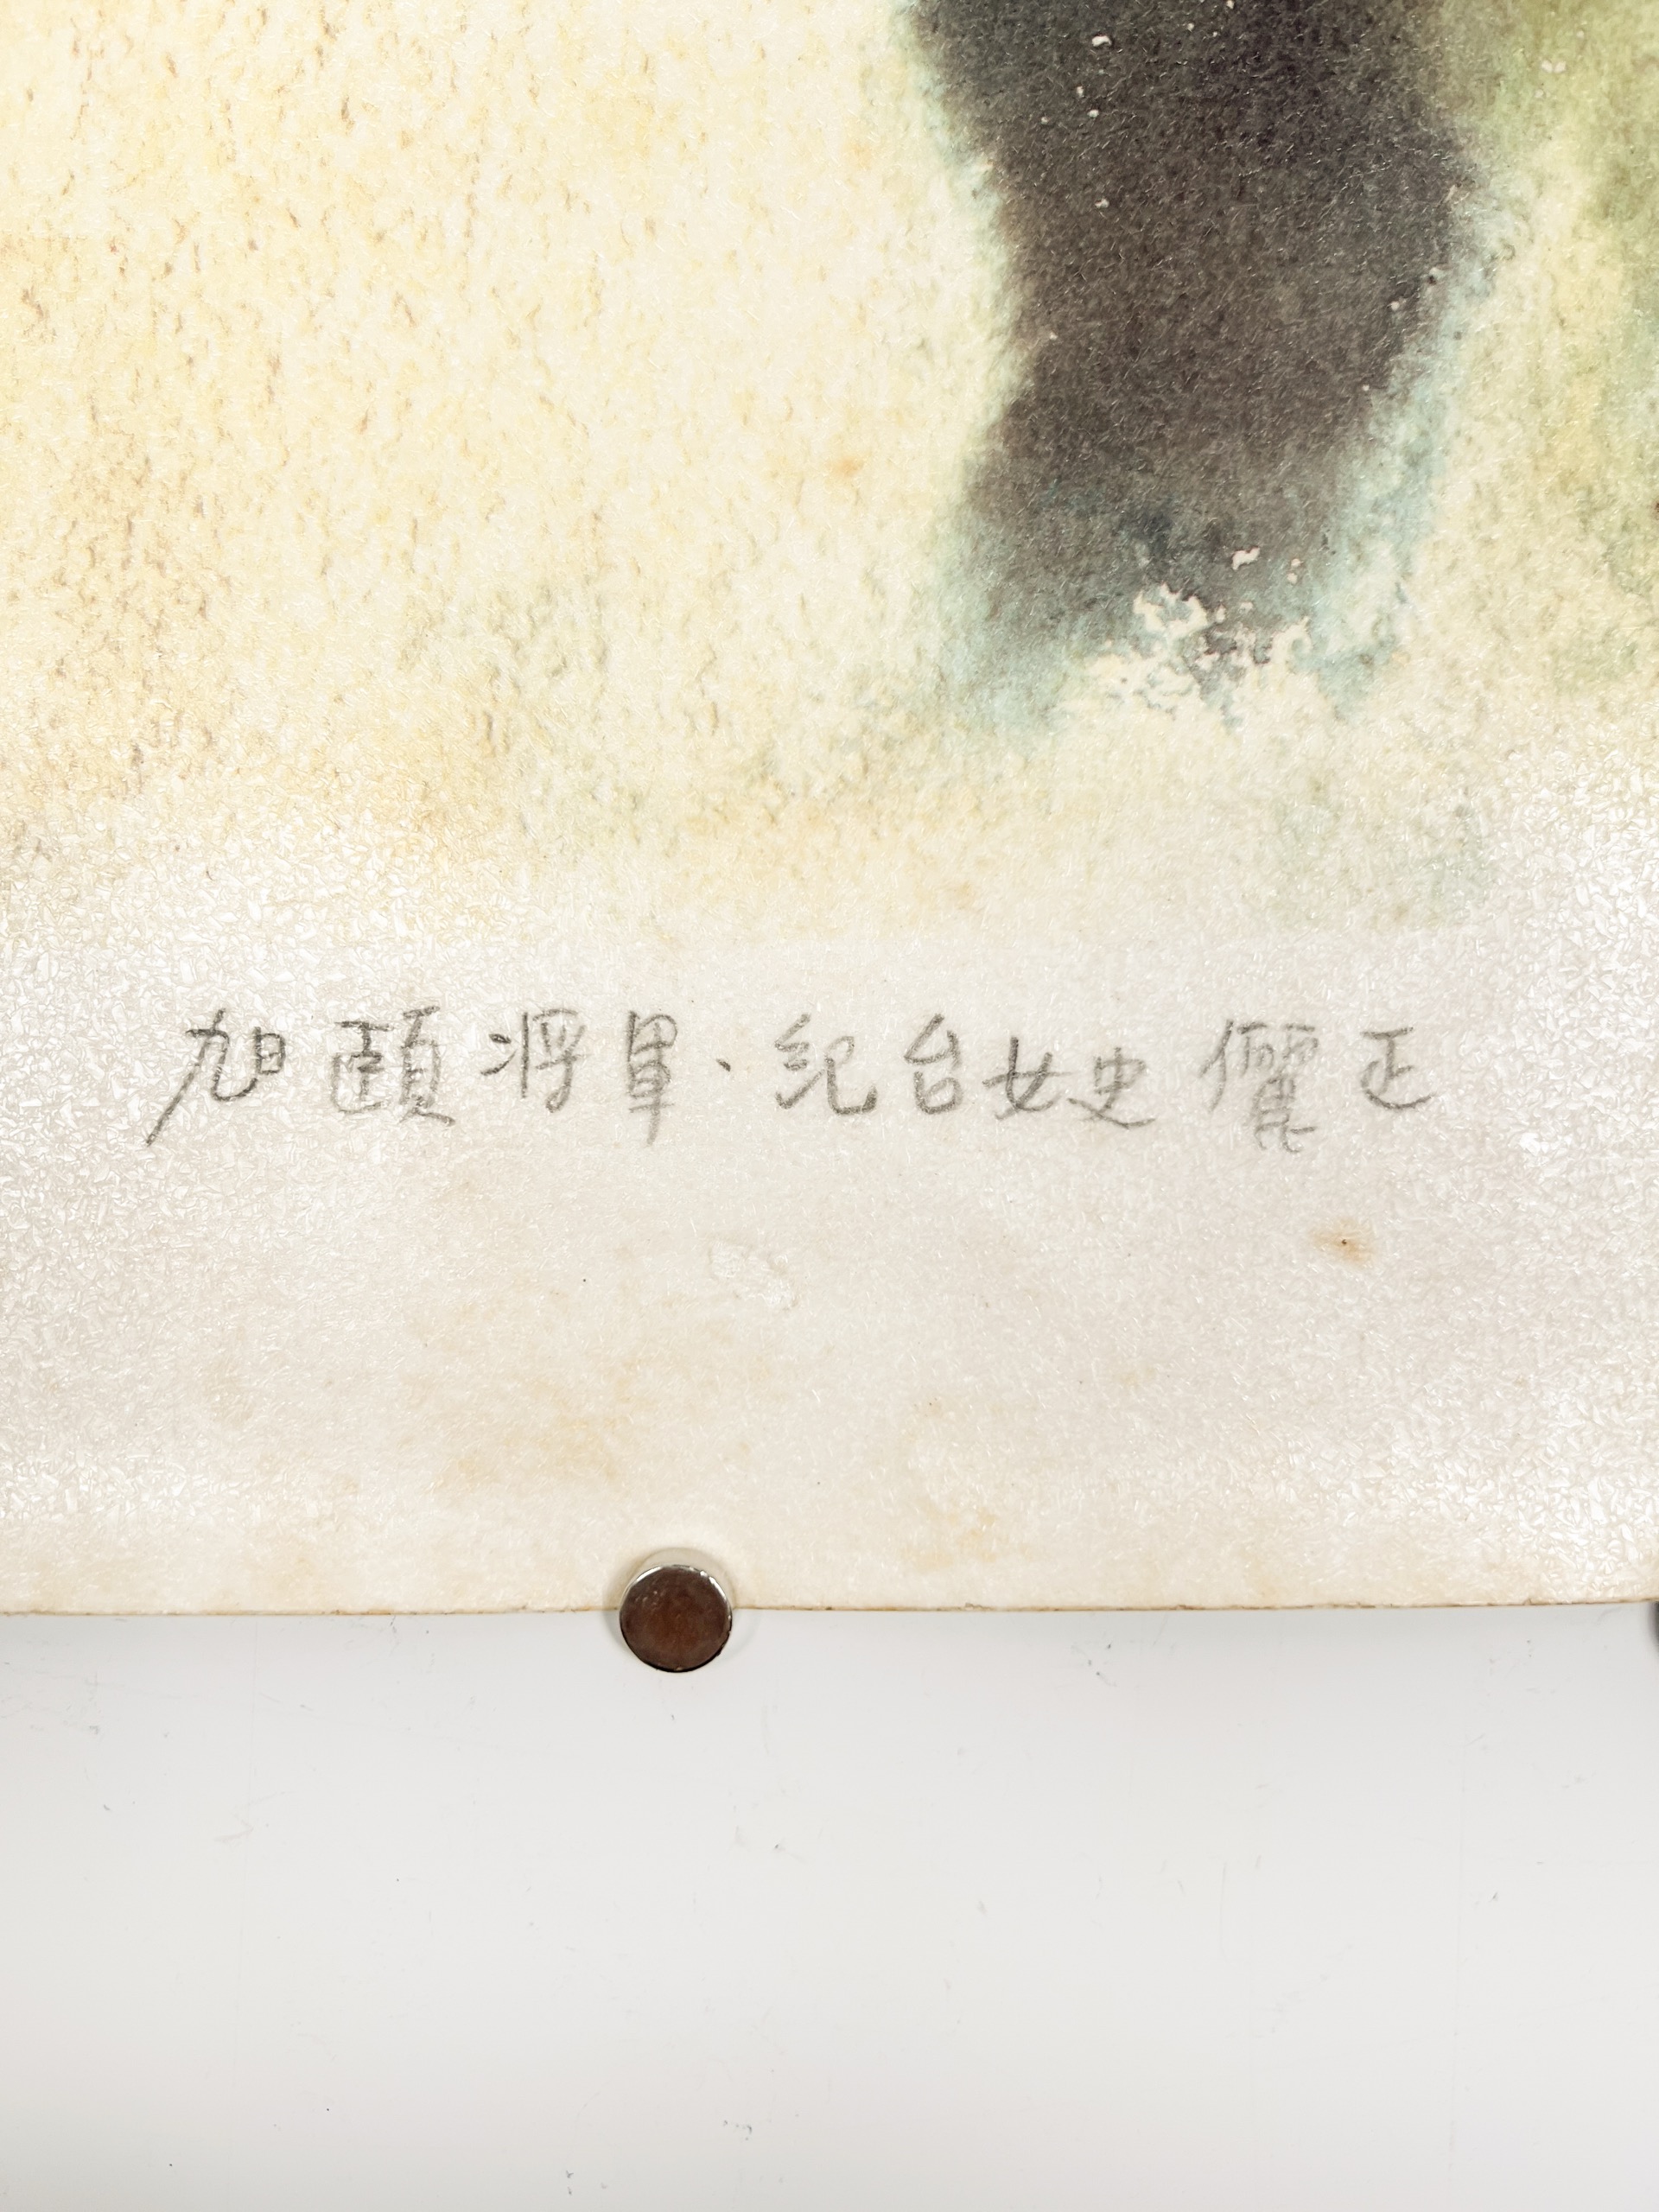 旭頤将軍·紀台女史儷正